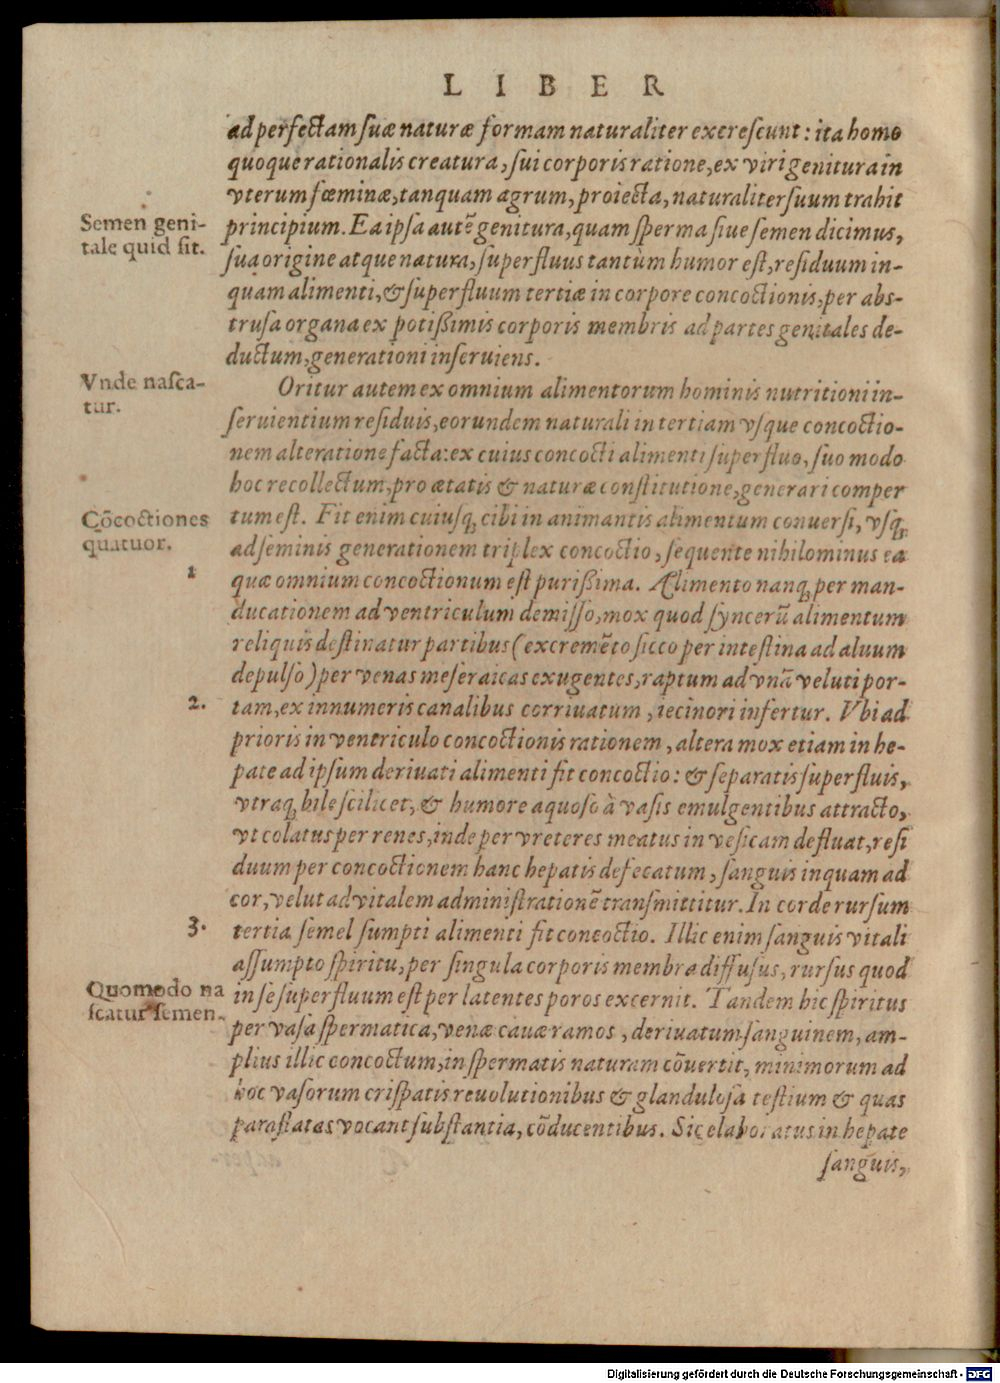 LIBER
ad perfectam suæ naturæ formam naturaliter excrescunt: ita homo
quoque rationalis creatura, sui corporis ratione, ex viri genitura in
vterum fœminæ, tanquam agrum, proiecta, naturaliter suum trahit
Semen geni-
tale quid sit.
principium. Ea ipsa autē genitura, quam sperma siue semen dicimus,
sua origine atque natura, superfluus tantùm humor est, residuum in-
quam alimenti, & superfluum tertiæ in corpore concoctionis, per abs-
trusa organa ex potißimis corporis membris ad partes genitales de-
ductum, generationi inseruiens.
Vnde nasca-
tur.
Oritur autem ex omnium alimentorum hominis nutritioni in-
seruientium residuis, eorundem naturali in tertiam vsque concoctio-
nem alteratione facta: ex cuius concocti alimenti superfluo, suo modo
hoc recollectum, pro ætatis & naturæ constitutione, generari comper
Cōcoctiones
quatuor.
tum est. Fit enim cuiusq; cibi in animantis alimentum conuersi, vsq;
ad seminis generationem triplex concoctio, sequente nihilominus ea
1
quæ omnium concoctionum est purißima. Alimento nanq; per man-
ducationem ad ventriculum demisso, mox quod syncerū alimentum
reliquis destinatur partibus (excremēto sicco per intestina ad aluum
depulso) per venas meseraicas exugentes, raptum ad vnā veluti por-
2.
tam, ex innumeris canalibus corriuatum, iecinori infertur. Vbi ad
prioris in ventriculo concoctionis rationem, altera mox etiam in he-
pate ad ipsum deriuati alimenti fit concoctio: & separatis superfluis,
vtraq; bile scilicet, & humore aquoso à vasis emulgentibus attracto,
vt colatus per renes, inde per vreteres meatus in vesicam defluat, resi
duum per concoctionem hanc hepatis defecatum, sanguis inquam ad
cor, velut ad vitalem administrationē transmittitur. In corde rursum
3.
tertia semel sumpti alimenti fit concoctio. Illic enim sanguis vitali
assumpto spiritu, per singula corporis membra diffusus, rursus quod
Quomodo na
scatur semen.
in se superfluum est per latentes poros excernit. Tandem hic spiritus
per vasa spermatica, venæ cauæ ramos, deriuatum sanguinem, am-
plius illic concoctum, in spermatis naturam cōuertit, minimorum ad
hoc vasorum crispatis reuolutionibus & glandulosa testium & quas
parastatas vocant substantia, cōducentibus. Sic elaboratus in hepate
sanguis,
Digitalisierung gefördert durch die Deutsche Forschungsgemeinschaft - DFG